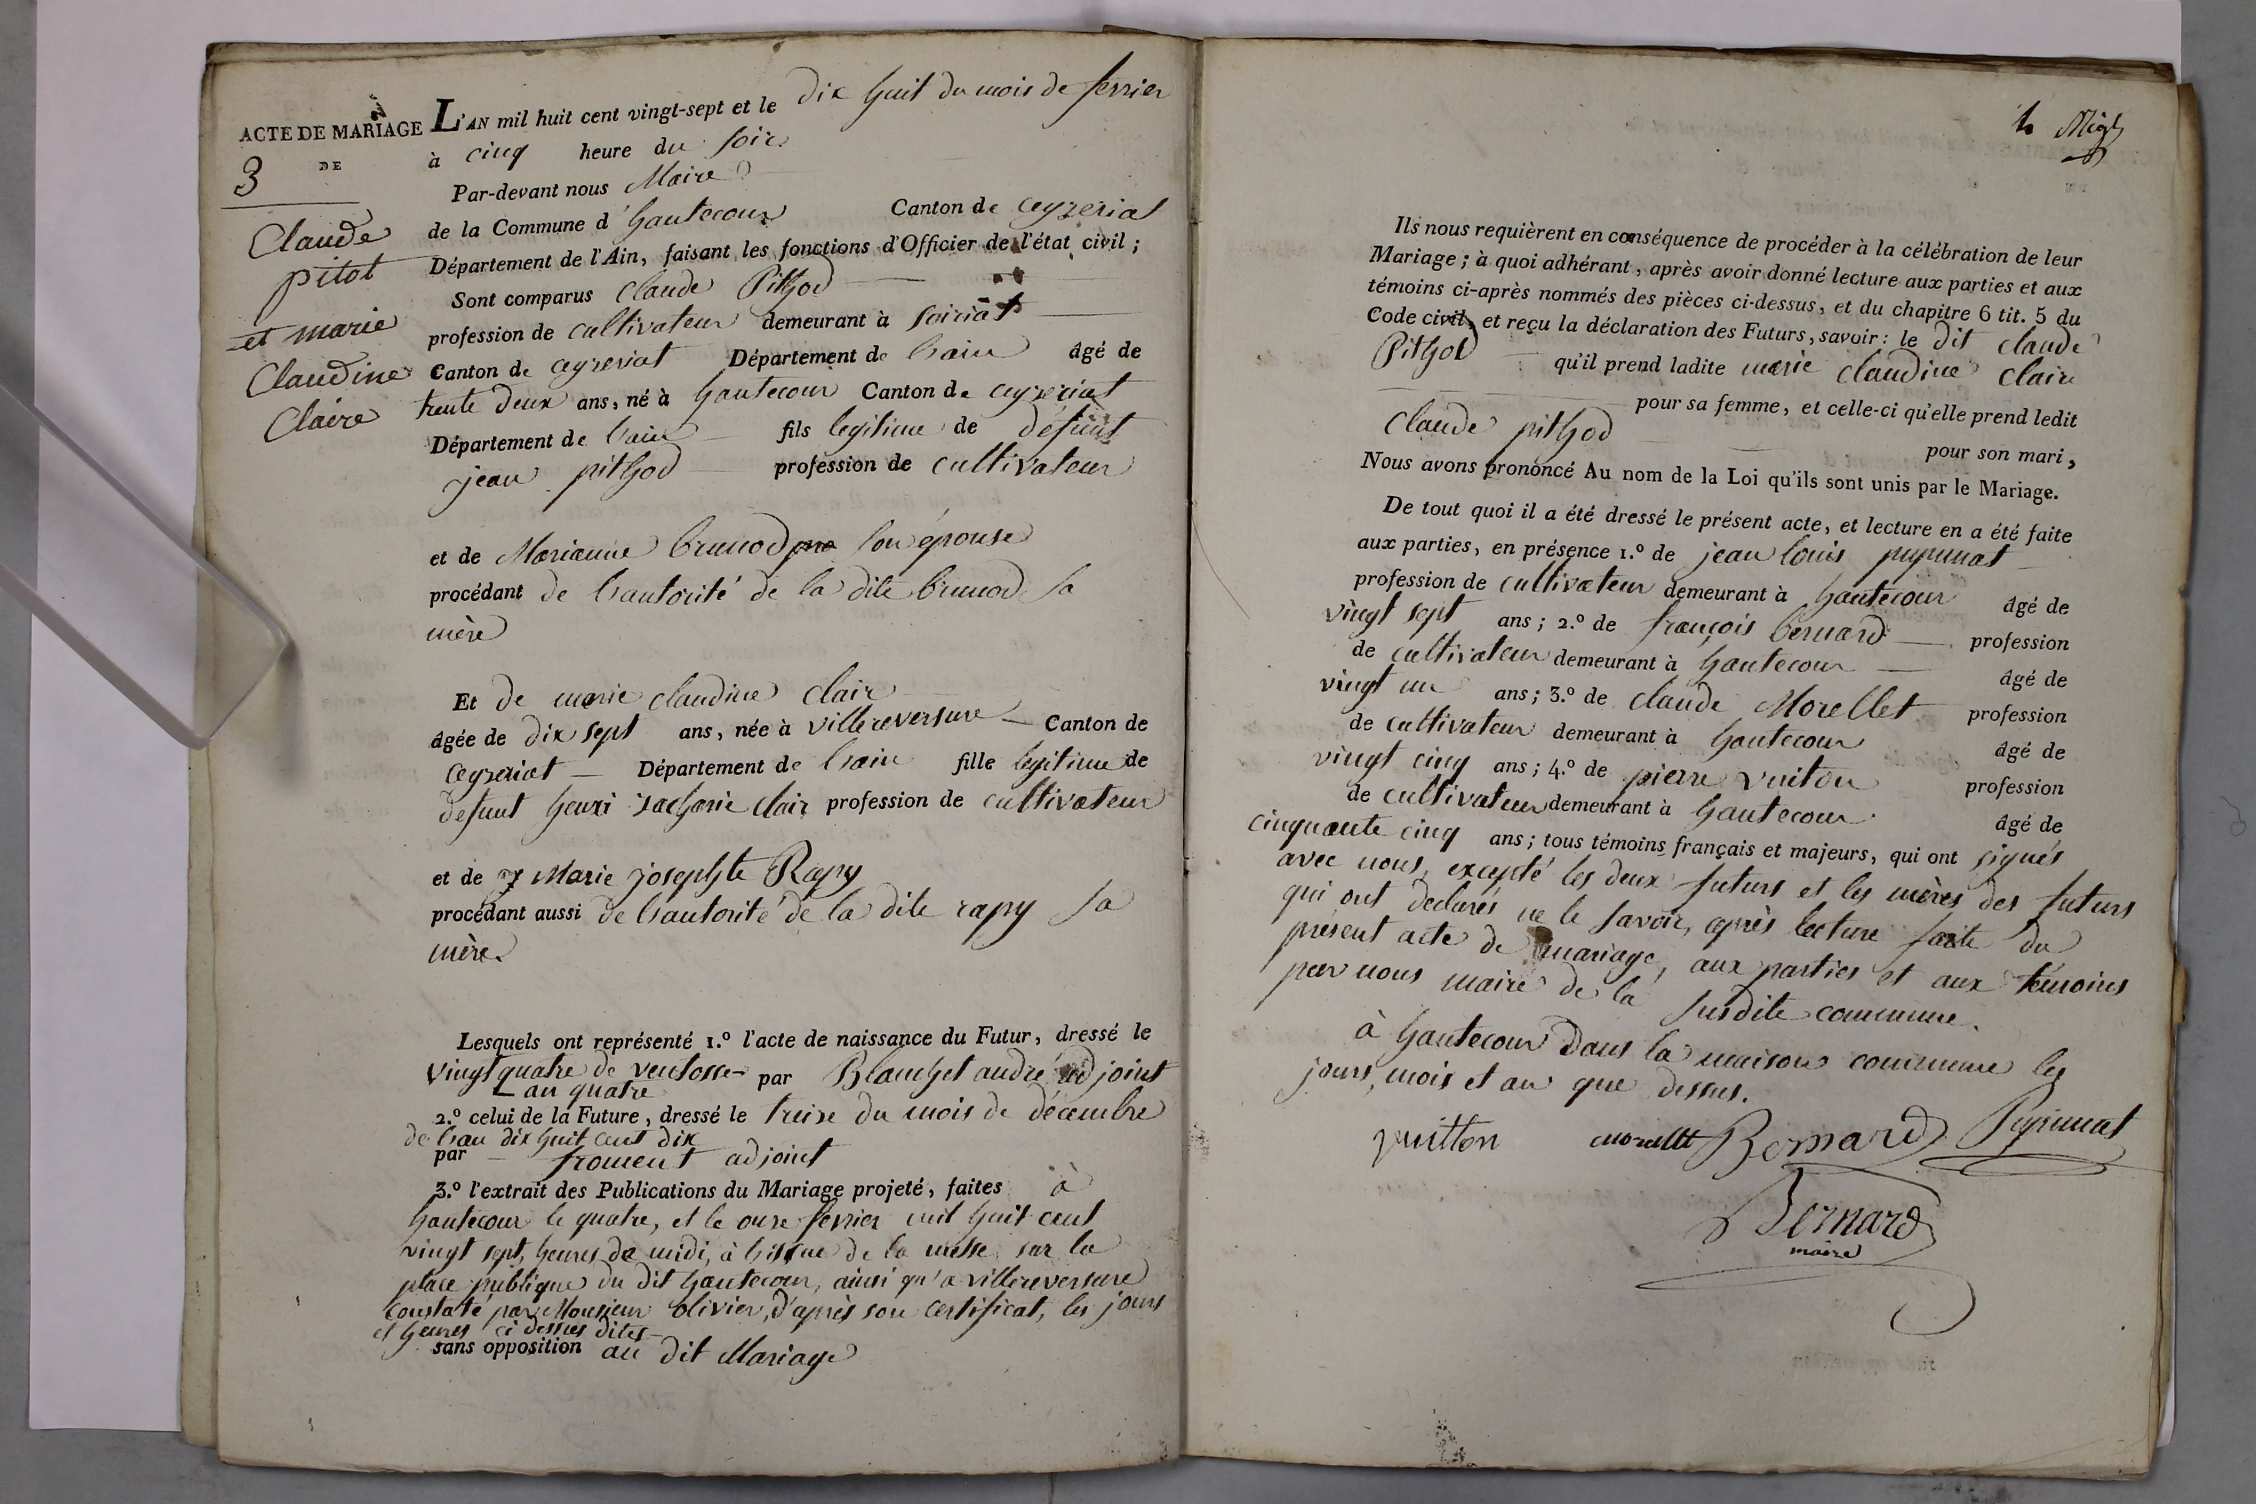 ACTE DE MARIAGE
DE
3
Claude
pitot
et marie
Claudine
Claire
L'AN mil huit cent vingt-sept et le dix huit du mois de fevrier
à cinq heure du soir
Par-devant nous Maire
de la Commune d'hautecour Canton de ceyzeriat
Département de l'Ain, faisant les fonctions d'Officier de l'état civil ;
Sont comparus Claude Pithod
profession de cultivateur demeurant à soiriat
Canton de ceyzeriat Département de lain âgé de
trente deux ans, né à hautecour Canton de ceyzeriat
Département de lain fils legitime de défunt
jean pithod profession de cultivateur
et de Marianne brunod son épouse
procédant de lautorité de la dite brunod sa
mère
Et de marie claudine clair
âgée de dix sept ans, née à villereversure Canton de
Ceyzeriat Département de lain fille legitime de
defunt henri zacharie clair profession de cultivateur
et de Marie josephte Rapy
procédant aussi de lautorité de la dite rapy sa
mère
Lesquels ont représenté 1.º l'acte de naissance du Futur, dressé le
vingt quatre de ventosse par Blanchet andré adjoint
an quatre
2.º celui de la Future, dressé le treize du mois de décembre
de lan dix huit cent dix
par froment adjoint
3.º l'extrait des Publications du Mariage projeté, faites à
hautecour le quatre, et le onze fevrier mil huit cent
vingt sept, heures de midi, à lissue de la messe sur la
place publique du dit hautecour, ainsi qu'a villereversure
constaté par Monsieur olivier, d'après son certificat, les jours
et heures ci dessus dites
sans opposition au dit Mariage
Ils nous requièrent en conséquence de procéder à la célébration de leur
Mariage ; à quoi adhérant, après avoir donné lecture aux parties et aux
témoins ci-après nommés des pièces ci-dessus, et du chapitre 6 tit. 5 du
Code civil, et reçu la déclaration des Futurs, savoir : le dit claude
Pithod qu'il prend ladite marie claudine clair
pour sa femme, et celle-ci qu'elle prend ledit
Claude pithod
pour son mari,
Nous avons prononcé Au nom de la Loi qu'ils sont unis par le Mariage.
De tout quoi il a été dressé le présent acte, et lecture en a été faite
aux parties, en présence 1.º de jean louis pupunat
profession de cultivateur demeurant à hautecour âgé de
vingt sept ans ; 2.º de françois bernard profession
de cultivateur demeurant à hautecour âgé de
vingt un ans ; 3.º de claude Morellet profession
de cultivateur demeurant à hautecour âgé de
vingt cinq ans ; 4.º de pierre vuiton profession
de cultivateur demeurant à hautecour âgé de
cinquante cinq ans ; tous témoins français et majeurs, qui ont signés
avec nous, excepté les deux futurs et les mères des futurs
qui ont declarés ne le savoir, après lecture faite du
présent acte de mariage, aux parties et aux témoins
par nous maire de la susdite commune.
à hautecour dans la maison commune les
jours, mois et an que dessus.
vuitton morellet Bernard Pupunat
Bernard
maire